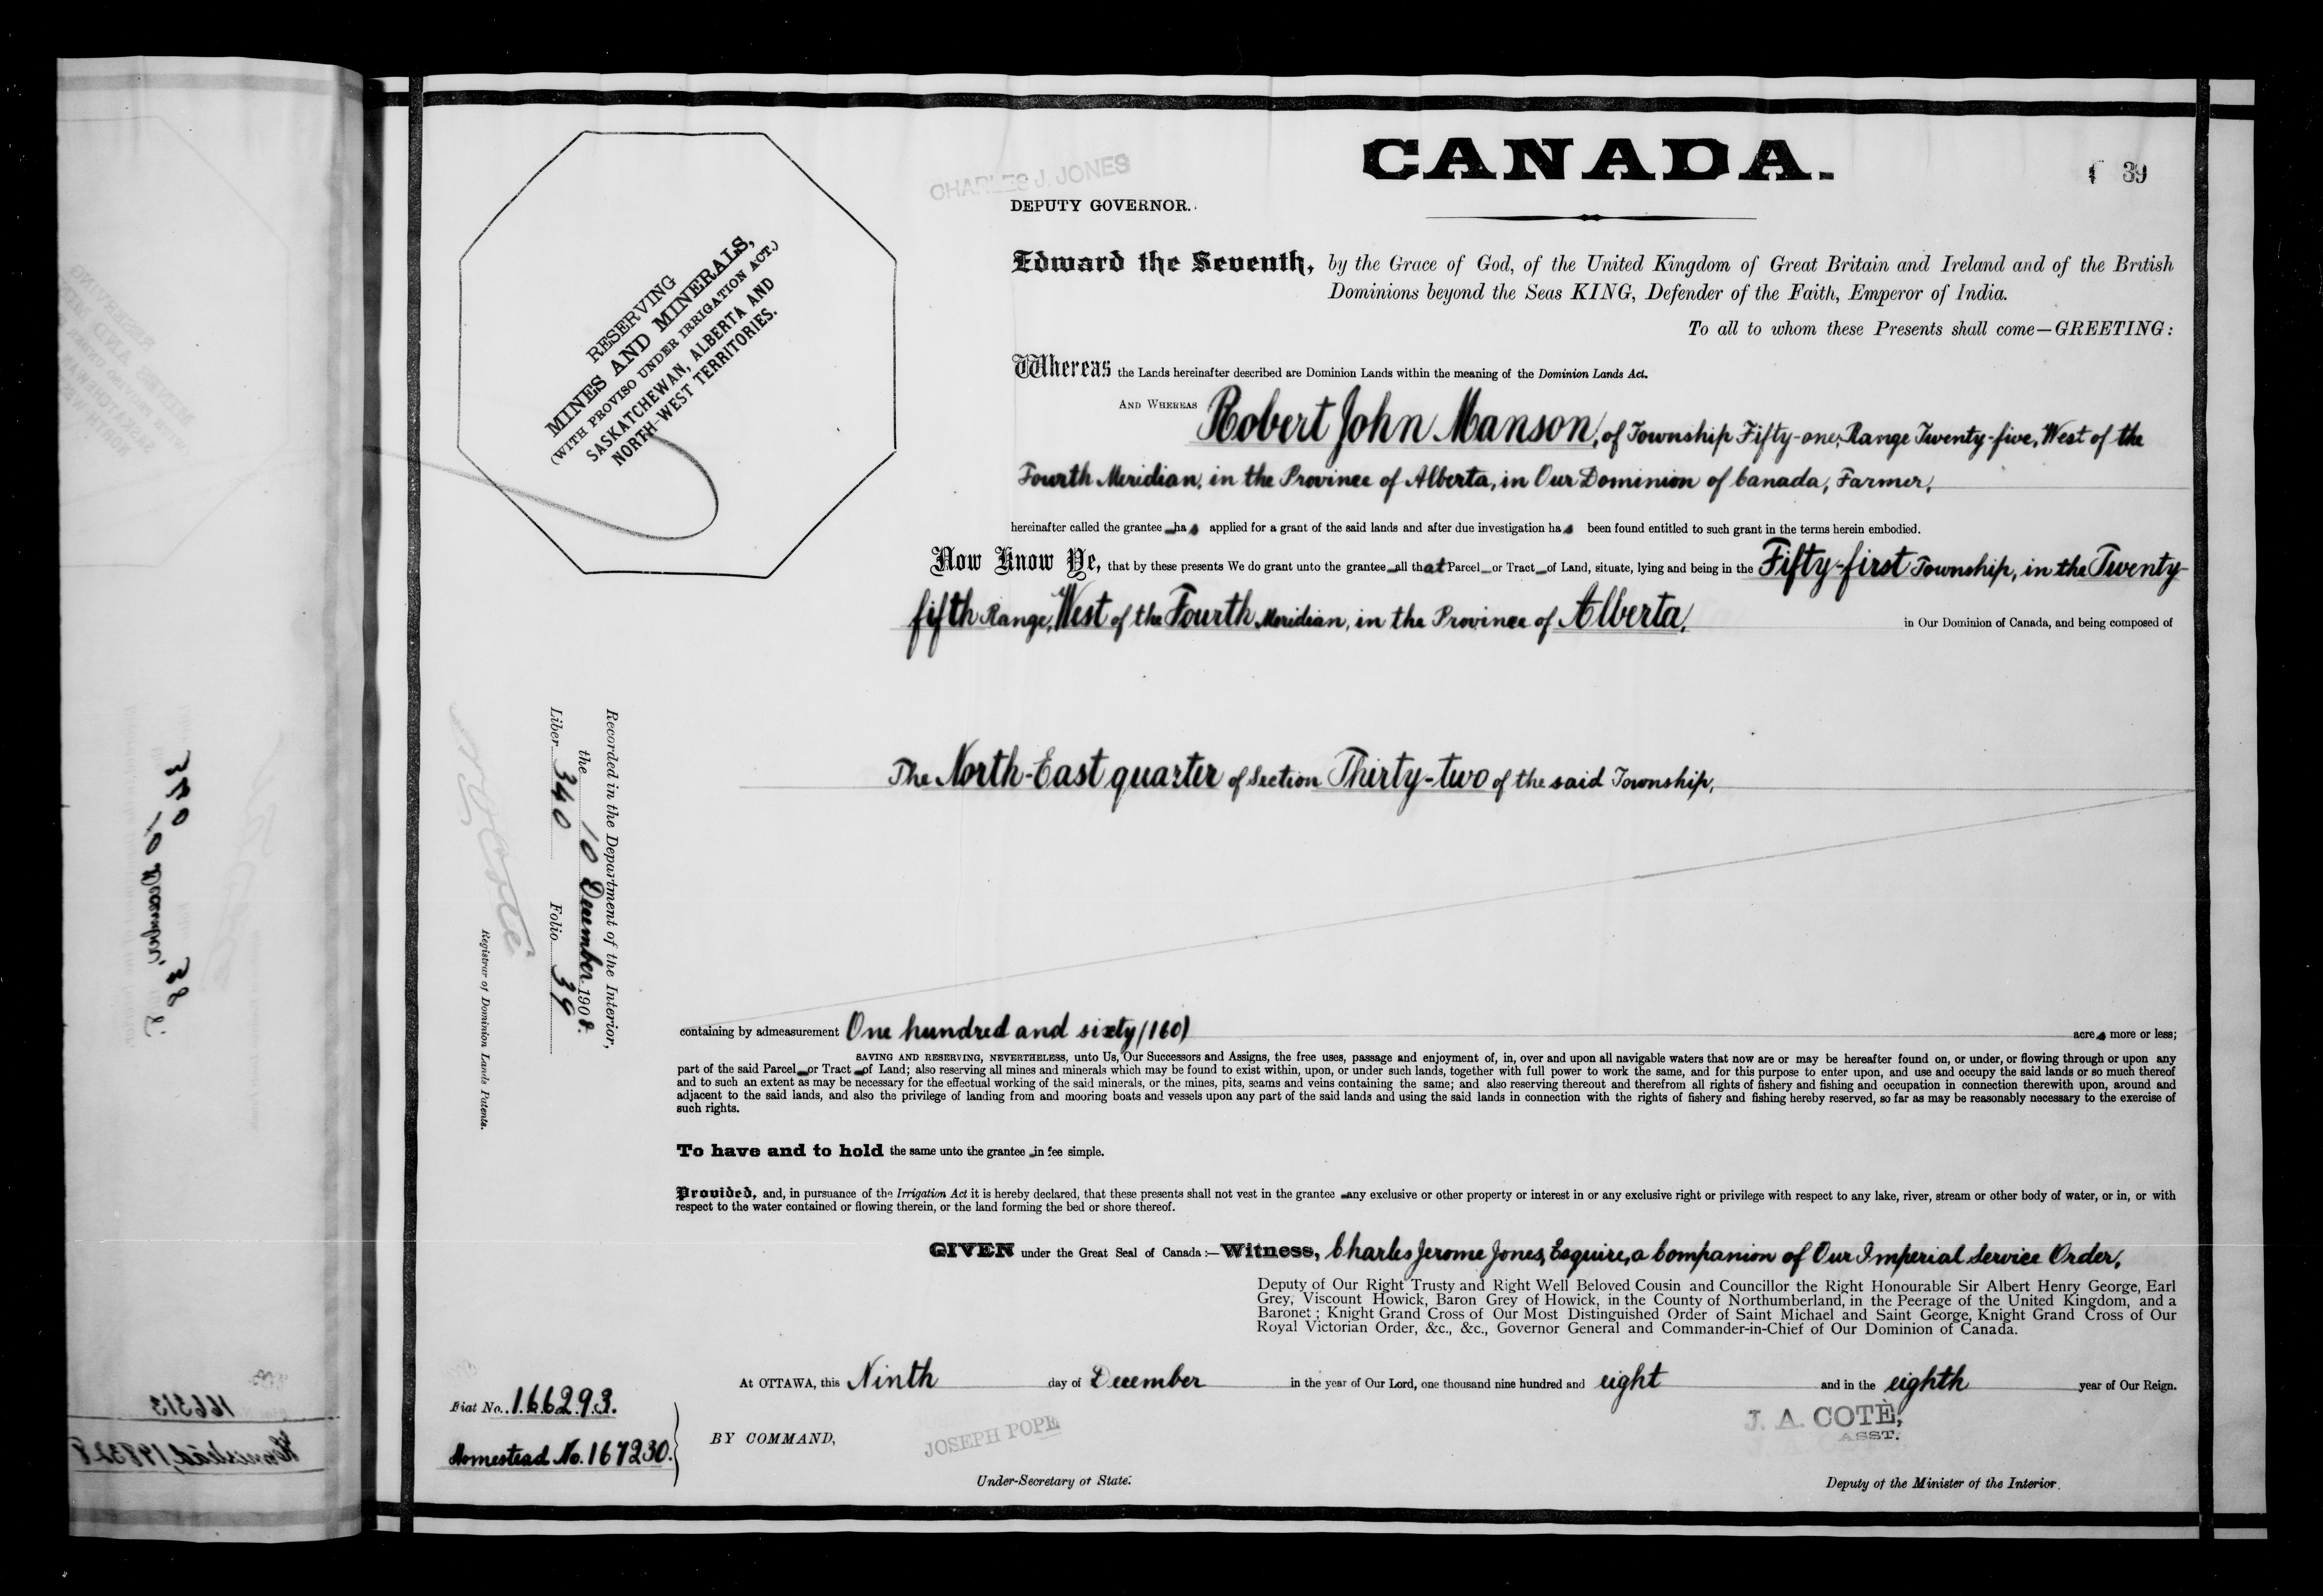 CANADA.
39
CHARLES J. JONES
DEPUTY GOVERNOR.
RESERVING
MINES AND MINERALS,
(WITH PROVISO UNDER IRRIGATION ACT.)
SASKATCHEWAN, ALBERTA AND
NORTH-WEST TERRITORIES.
Edward the Seventh, by the Grace of God, of the United Kingdom of Great Britain and Ireland and of the British
Dominions beyond the Seas KING, Defender of the Faith, Emperor of India.
To all to whom these Presents shall come—GREETING:
Whereas the Lands hereinafter described are Dominion Lands within the meaning of the Dominion Lands Act.
AND WHEREAS Robert John Manson, of Township Fifty-one, Range Twenty-five, West of the
Fourth Meridian, in the Province of Alberta, in Our Dominion of Canada, Farmer,
hereinafter called the grantee has applied for a grant of the said lands and after due investigation has been found entitled to such grant in the terms herein embodied.
Now Know Ye, that by these presents We do grant unto the grantee all that Parcel or Tract of Land, situate, lying and being in the Fifty-first Township, in the Twenty-
fifth Range, West of the Fourth Meridian, in the Province of Alberta, in Our Dominion of Canada, and being composed of
The North-East quarter of Section Thirty-two of the said Township,
Recorded in the Department of the Interior,
the 10 December 1908.
Liber 340 Folio 39
Registrar of Dominion Lands Patents.
containing by admeasurement One hundred and sixty (160) acres more or less;
SAVING AND RESERVING, NEVERTHELESS, unto Us, Our Successors and Assigns, the free uses, passage and enjoyment of, in, over and upon all navigable waters that now are or may be hereafter found on, or under, or flowing through or upon any
part of the said Parcel or Tract of Land; also reserving all mines and minerals which may be found to exist within, upon, or under such lands, together with full power to work the same, and for this purpose to enter upon, and use and occupy the said lands or so much thereof
and to such an extent as may be necessary for the effectual working of the said minerals, or the mines, pits, seams and veins containing the same; and also reserving thereout and therefrom all rights of fishery and fishing and occupation in connection therewith upon, around and
adjacent to the said lands, and also the privilege of landing from and mooring boats and vessels upon any part of the said lands and using the said lands in connection with the rights of fishery and fishing hereby reserved, so far as may be reasonably necessary to the exercise of
such rights.
To have and to hold the same unto the grantee in fee simple.
Provided, and, in pursuance of the Irrigation Act it is hereby declared, that these presents shall not vest in the grantee any exclusive or other property or interest in or any exclusive right or privilege with respect to any lake, river, stream or other body of water, or in, or with
respect to the water contained or flowing therein, or the land forming the bed or shore thereof.
GIVEN under the Great Seal of Canada:—Witness, Charles Jerome Jones, Esquire, a Companion of Our Imperial Service Order,
Deputy of Our Right Trusty and Right Well Beloved Cousin and Councillor the Right Honourable Sir Albert Henry George, Earl
Grey, Viscount Howick, Baron Grey of Howick, in the County of Northumberland, in the Peerage of the United Kingdom, and a
Baronet; Knight Grand Cross of Our Most Distinguished Order of Saint Michael and Saint George, Knight Grand Cross of Our
Royal Victorian Order, &c., &c., Governor General and Commander-in-Chief of Our Dominion of Canada.
At OTTAWA, this Ninth day of December in the year of Our Lord, one thousand nine hundred and eight and in the eighth year of Our Reign.
Fiat No. 166293.
Homestead No. 167230.
BY COMMAND,
JOSEPH POPE
Under-Secretary of State.
J. A. COTÉ,
ASST.
Deputy of the Minister of the Interior.